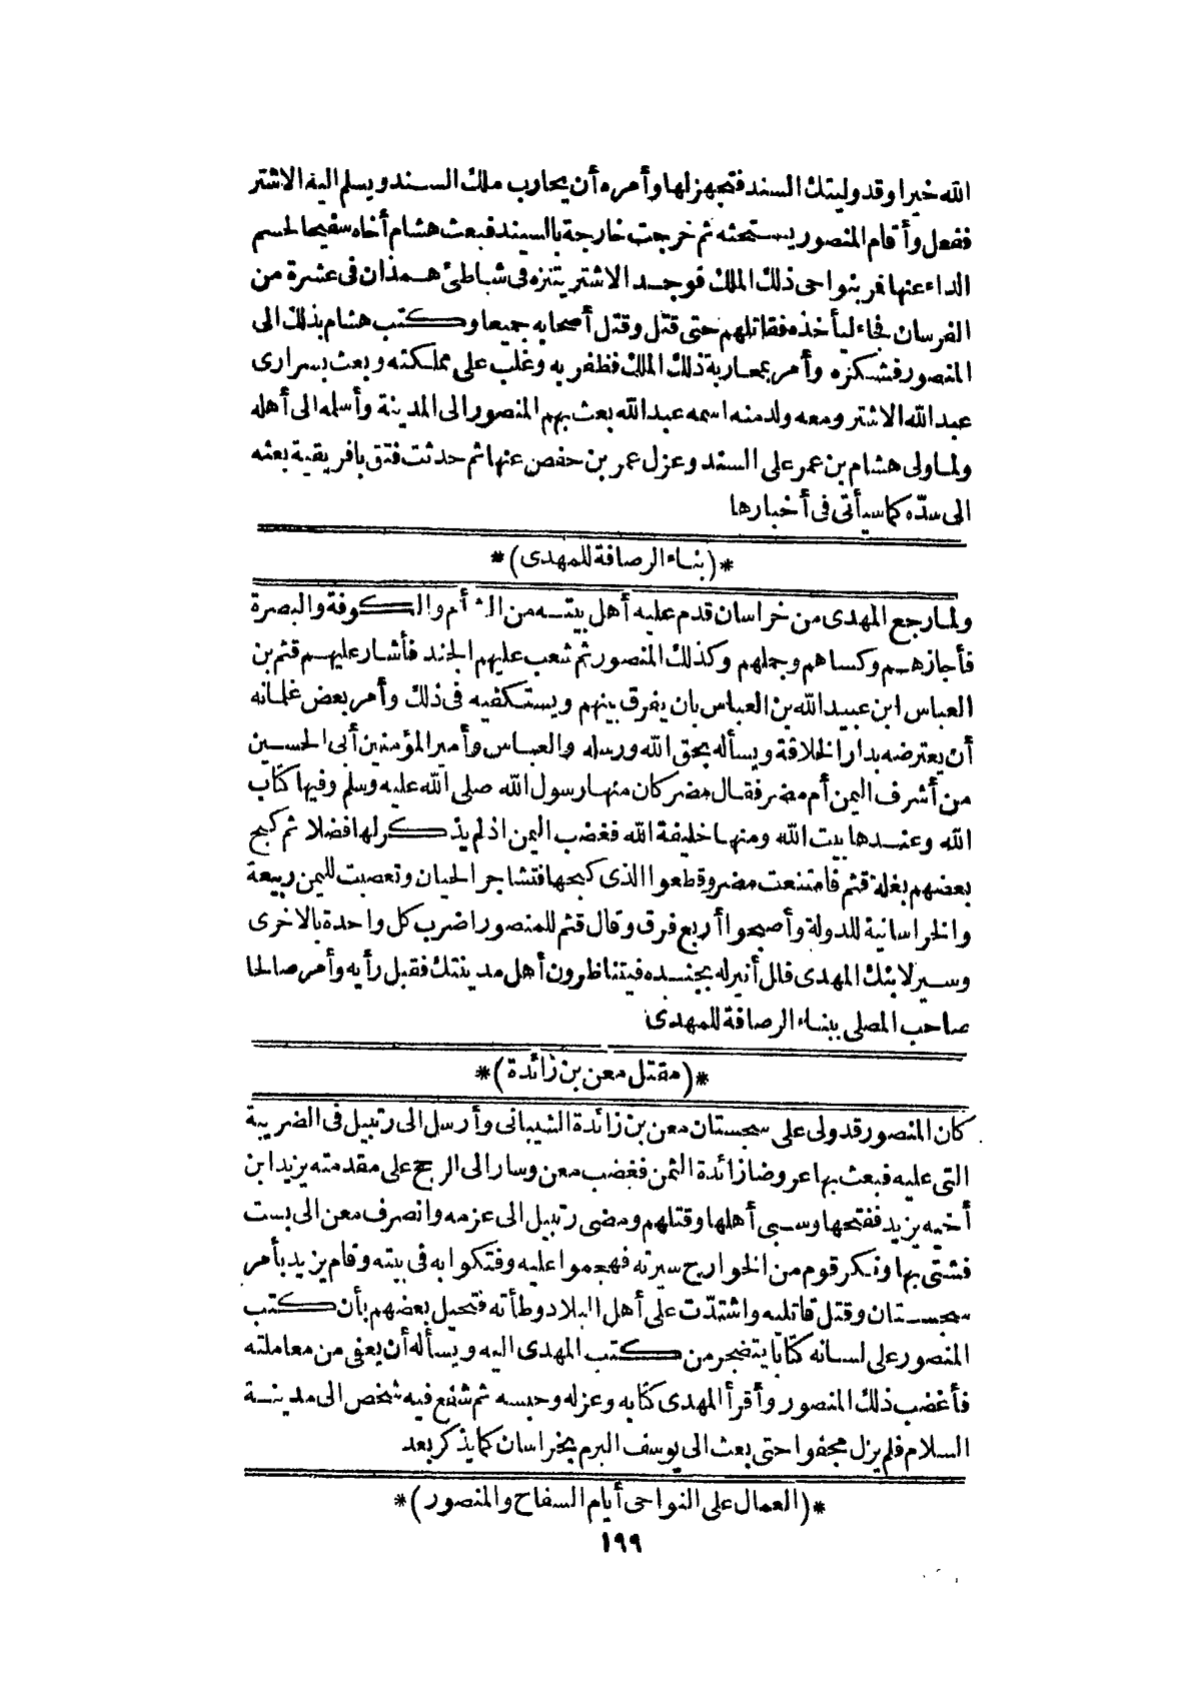 الله خيرا وقد وليتك السند فتجهز لها وأمره أن يحارب ملك السند ويسلم اليه الاشتر
ففعل وأقام المنصور يستحثه ثم خرجت خارجة بالسند فبعث هشام أخاه سفيحا لحسم
الداء عنها فمر بنواحى ذلك الملك فوجد الاشتر يتنزه فى شاطئ همذان فى عشرة من
الفرسان فجاء ليأخذه فقاتلهم حتى قتل وقتل أصحابه جميعا وكتب هشام بذلك الى
المنصور فشكره وأمر بمحاربة ذلك الملك فظفر به وغلب على مملكته وبعث بسرارى
عبد الله الاشتر ومعه ولد منه اسمه عبد الله بعث بهم المنصور الى المدينة وأسلمه الى أهله
ولما ولى هشام بن عمر على السند وعزل عمر بن حفص عنها ثم حدثت فتق بافريقية بعثه
الى سدّه كما سيأتى فى أخبارها
*(بناء الرصافة للمهدى)*
ولما رجع المهدى من خراسان قدم عليه أهل بيته من الشأم والكوفة والبصرة
فأجازهم وكساهم وحملهم وكذلك المنصور ثم شعب عليهم الجند فأشار عليهم قثم بن
العباس ابن عبيد الله بن العباس بان يفرق بينهم ويستكفيه فى ذلك وأمر بعض غلمانه
أن يعترضه بدار الخلافة ويسأله بحق الله ورسله والعباس وأمير المؤمنين أبى الحسين
من أشرف اليمن أم مضر فقال مضر كان منها رسول الله صلى الله عليه وسلم وفيها كتاب
الله وعندها بيت الله ومنها خليفة الله فغضب اليمن اذ لم يذكر لها فضلا ثم كبح
بعضهم بغلة قثم فامتنعت مضر وقطعوا الذى كبحها فتشاجر الحيان وتعصبت لليمن ربيعة
والخراسانية للدولة وأصبحوا أربع فرق وقال قثم للمنصور اضرب كل واحدة بالاخرى
وسير لابنك المهدى فلل أنيرله بجنده فيتناظرون أهل مدينتك فقبل رأيه وأمر صالحا
صاحب المصلى ببناء الرصافة للمهدى
*(مقتل معن بن زائدة)*
كان المنصور قد ولى على سجستان معن بن زائدة الشيبانى وأرسل الى رتبيل فى الضريبة
التى عليه فبعث بها عروضا زائدة الثمن فغضب معن وسار الى الرجج على مقدمته يزيد ابن
أخيه يزيد ففتحها وسبى أهلها وقتلهم ومضى رتبيل الى عزمه وانصرف معن الى بست
فشتى بها ونكر قوم من الخوارج سيرته فهجموا عليه وفتكوا به فى بيته وقام يزيد بأمر
سجستان وقتل قاتليه واشتدّت على أهل البلاد وطأته فتحيل بعضهم بأن كتب
المنصور على لسانه كتابا يتضجر من كتب المهدى اليه ويسأله أن يعفى من معاملته
فأغضب ذلك المنصور وأقرأ المهدى كتابه وعزله وحبسه ثم شفع فيه شخص الى مدينة
السلام فلم يزل مجفوا حتى بعث الى يوسف البرم بخراسان كما يذكر بعد
*(العمال على النواحى أيام السفاح والمنصور)*
١٩٩